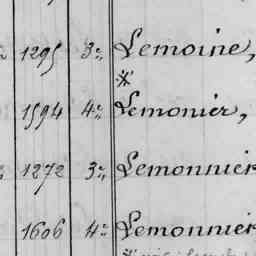 1295 3e Lemoine,
※
1594 4e Lemonier,
1272 3e Lemonnier
1606 4e Lemonnier